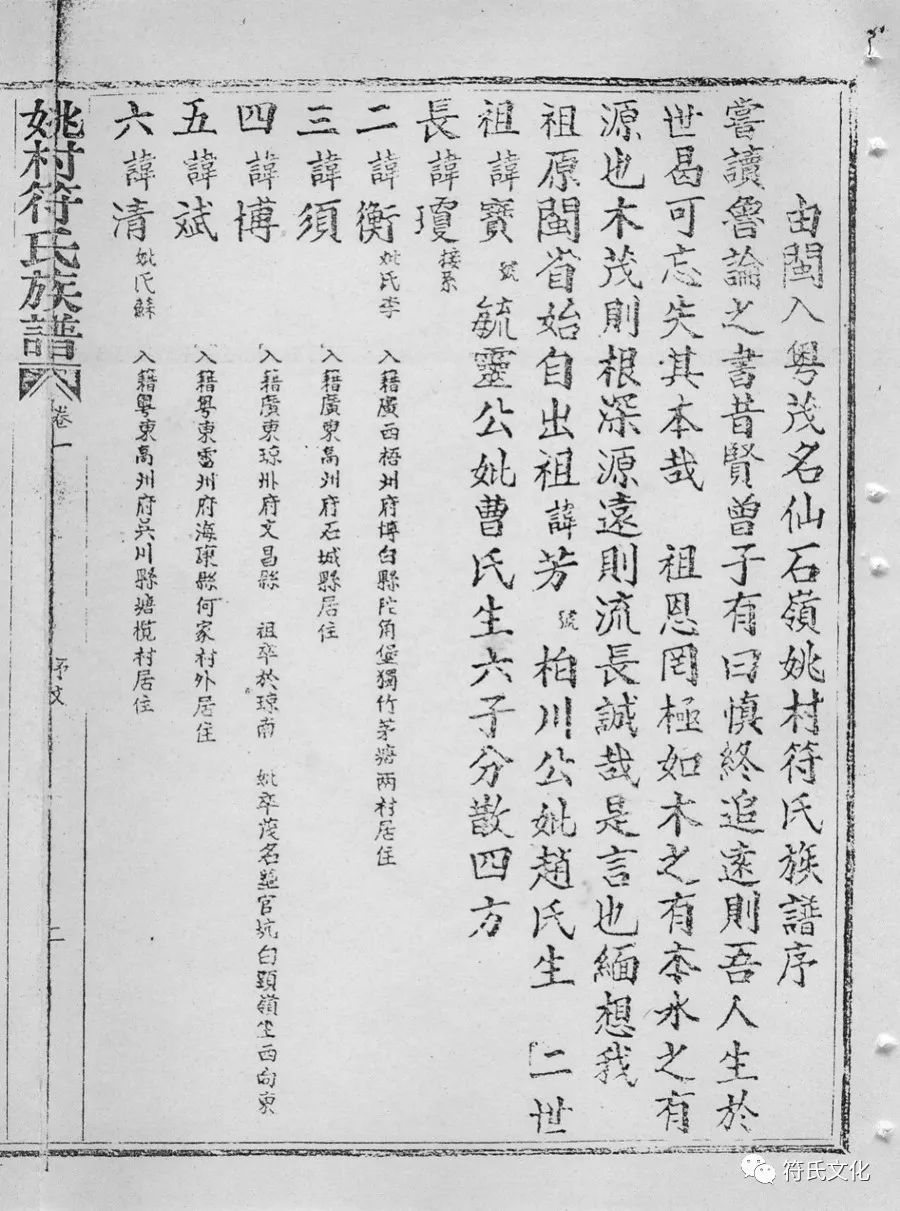 由閩入粵茂名仙石嶺姚村符氏族譜序
嘗讀魯論之書昔賢曾子有曰慎終追遠則吾人生於
世曷可忘失其本哉 祖恩罔極如木之有本水之有
源也木茂則根深源遠則流長誠哉是言也緬想我
祖原閩省始自出祖諱芳號柏川公妣趙氏生 二世
祖諱寶號毓靈公妣曹氏生六子分散四方
長諱瓊接系
二諱衡妣氏李 入籍廣西梧州府博白縣陀角堡獨竹茅塘两村居住
三諱須 入籍廣東高州府石城縣居住
四諱博 入籍廣東琼州府文昌縣 祖卒於琼南 妣卒茂名塟官坑白頸嶺坐西向東
五諱斌 入籍粵東雷州府海康縣何家村外居住
六諱清妣氏蘇 入籍粵東高州府吳川縣塘㰖村居住
姚村符氏族譜 卷一 序文 二
符氏文化